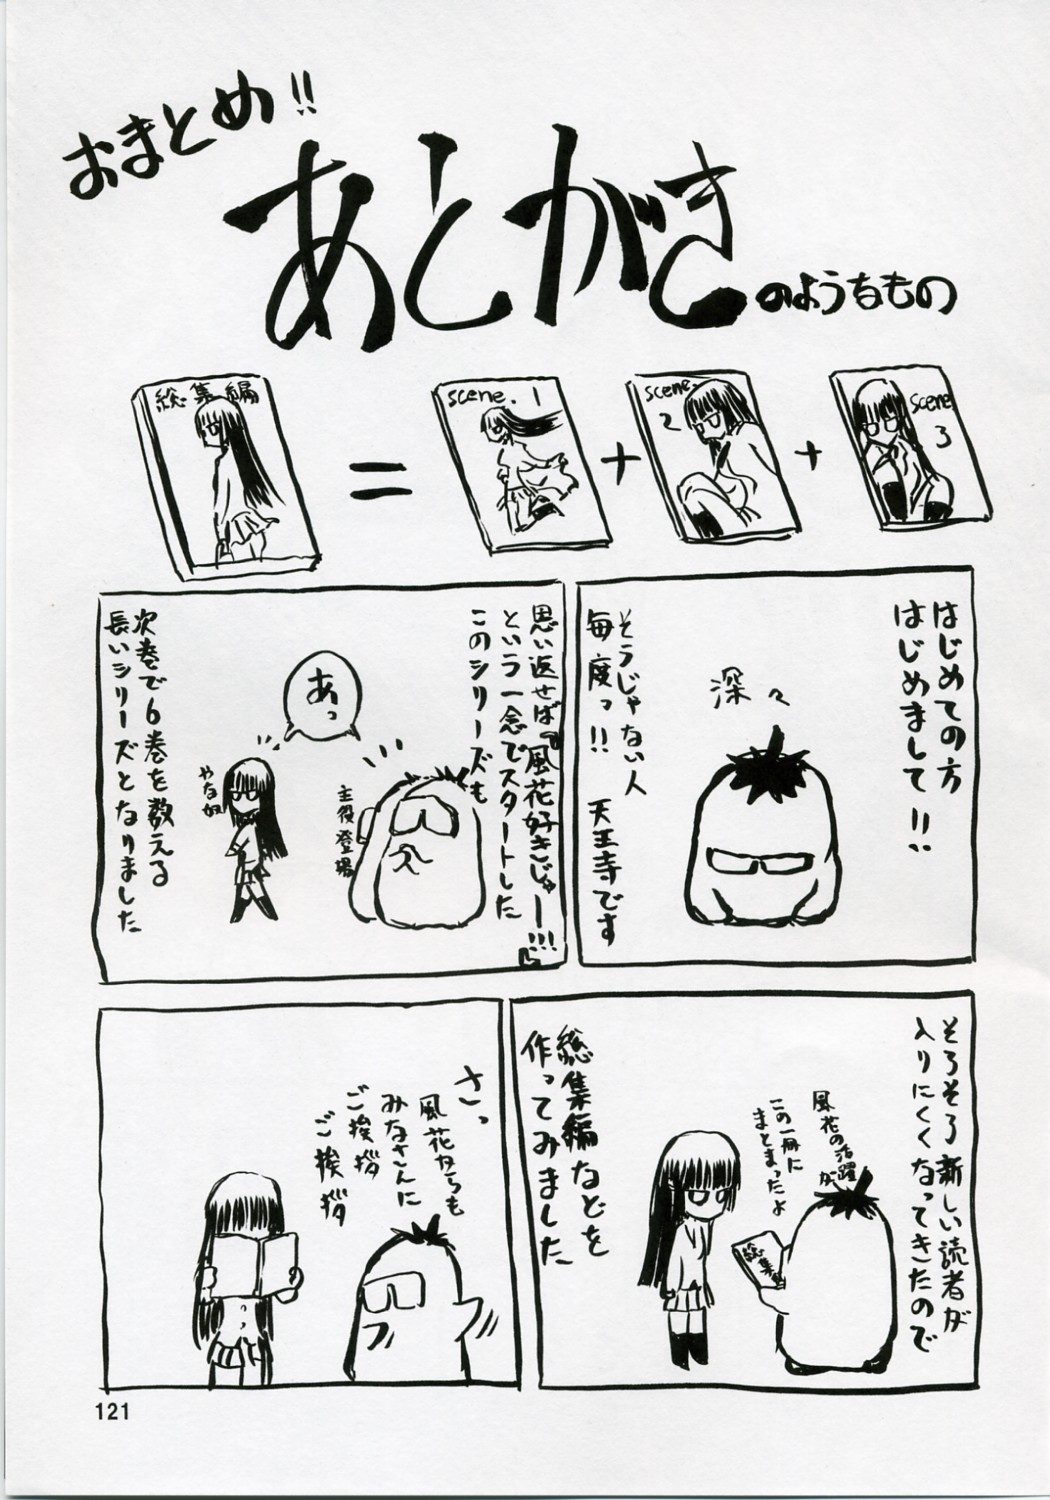 おまとめ!!
あとがき
のようなもの
総集編
=
scene. 1
+
scene. 2
+
scene. 3
はじめての方
はじめまして!!
深々
そうじゃない人
毎度っ!! 天王寺です
思い返せば『風花好きじゃー!!!』
という一念でスタートした
このシリーズも
主役登場
あっ
次巻で6巻を数える
長いシリーズとなりました
そろそろ新しい読者が
入りにくくなってきたので
風花の活躍が
この一冊に
まとまったよ
総集編
総集編などを
作ってみました
さっ
風花からも
みなさんに
ご挨拶
ご挨拶
121